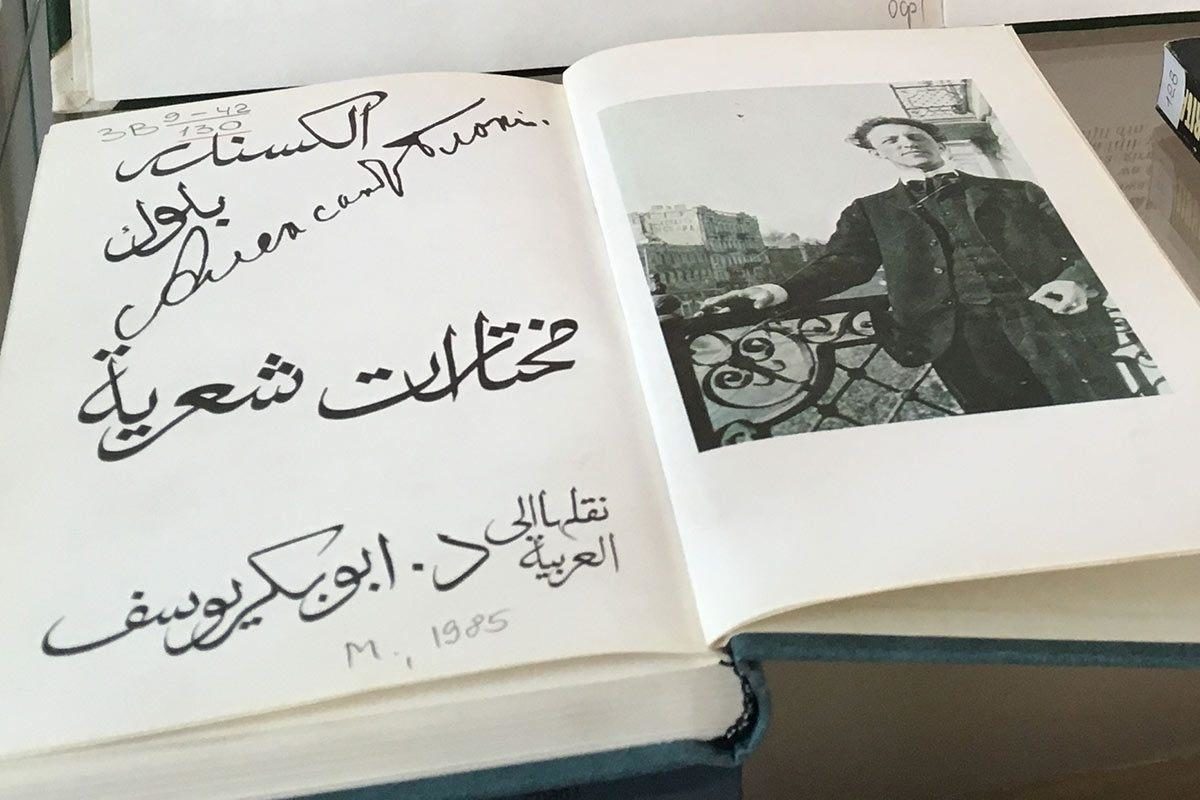 ЗВ 9-42
130
الكسندر
بلوك
Александр Блок.
مختارات شعرية
نقلها إلى
العربية
د. ابو بكر يوسف
М., 1985
128